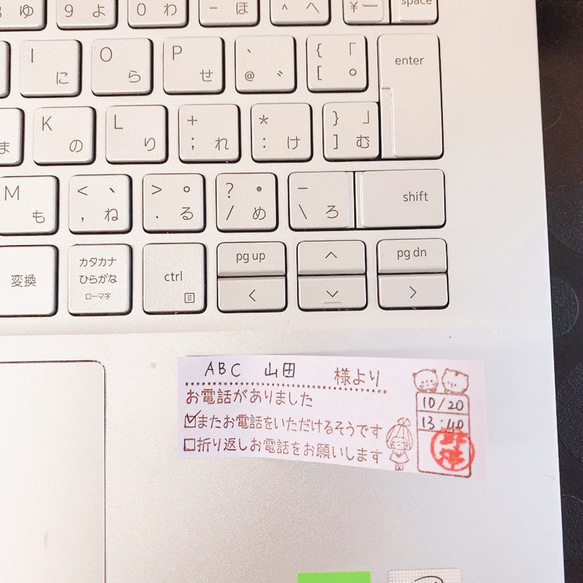 3 ゆ
9 よ
0 わ
- ほ
^ へ
¥ ー
space
I に
O ら
P せ
` @ ゛
{ 「 [ ゜
enter
K の
L り
+ ; れ
* : け
} 」 ] む
M も
< 、 , ね
> 。 . る
? ・ / め
_ \ ろ
shift
変換
カタカナ
ひらがな
ローマ字
ctrl
pg up
pg dn
ABC 山田 様より
お電話がありました
☑またお電話をいただけるそうです
☐折り返しお電話をお願いします
10/20
13:40